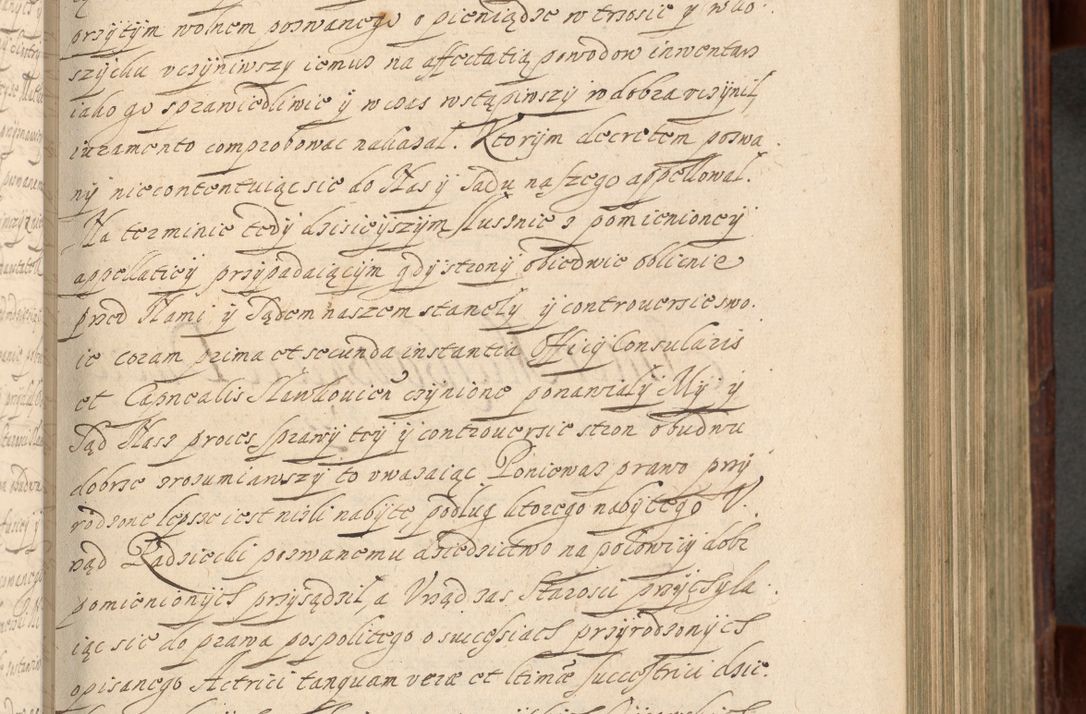 przytym wolnem pozwanego o pieniądze w trzosie y w ko.
szyczku uczyniwszy iemuz na affectatią powodow inwentarz
iako go sprawiedliwie y w czas wstąpiwszy w dobra uczynił
iuramento comprobowac nakazał. Ktorym decretem pozwa.
ny niecontentuiąc sie do Nas y Sądu naszego appellował.
Na terminie tedy dzisieyszym słusznie z pomienioney
appellatiey przypadaiącym gdy strony obiedwie oblicznie
przed Nami y Sądem naszem stanęły y controuersie swo.
ie coram prima et secunda instantia Officy Consularis
et Capnealis Slawkovien czynione ponawiały My y
Sąd Nasz proces sprawy tey y controuersie stron obudwu
dobrze zrozumiawszy to uwazaiąc Poniewaz prawo przy
rodzone lepsze iest nizli nabyte podług ktorego nabytego V.
rząd Radziecki pozwanemu dziedzictwo na połowicy dobr
pomienionych przysądził a Urząd zas Starosci przychyla.
iąc sie do prawa pospolitego o succesiach przyrodzonych
opisanego Actrici tanquam veræ et ltimæ succestrici dzie.